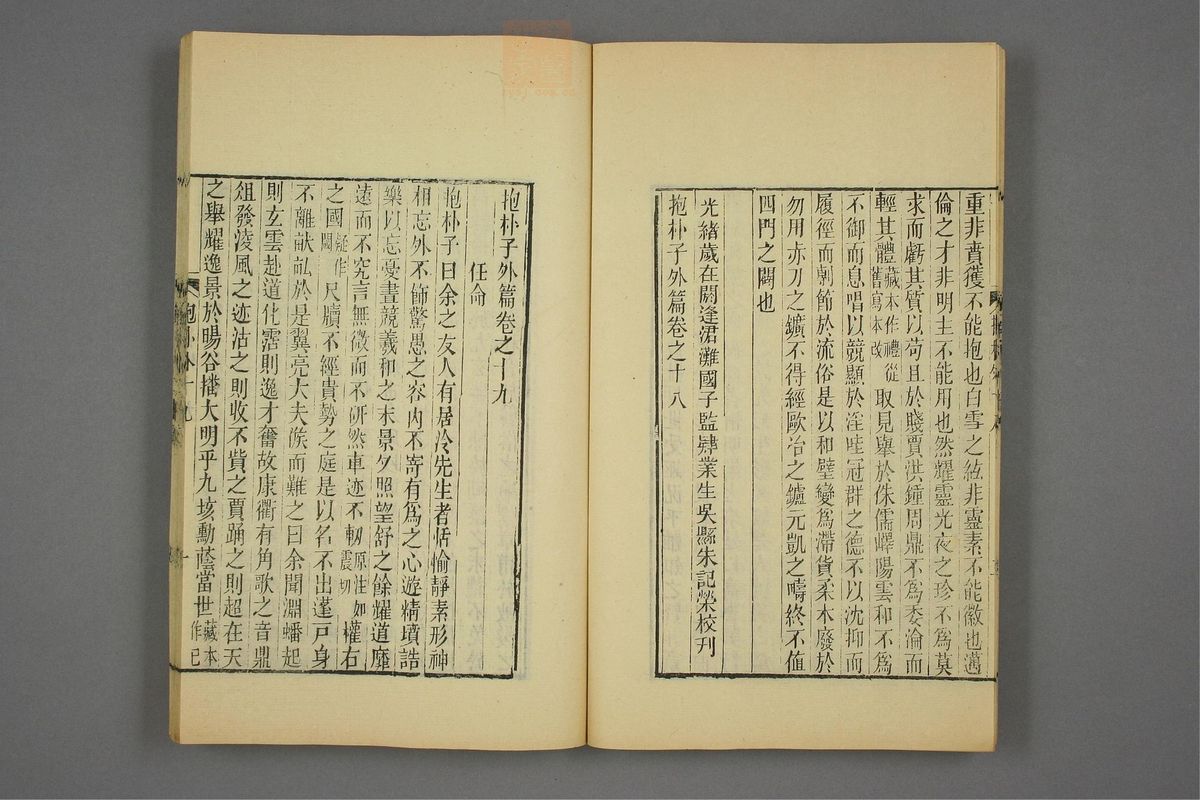 重非賁獲不能抱也白雪之絃非靈素不能徽也邁
倫之才非明主不能用也然耀靈光夜之珍不為莫
求而虧其質以苟且於賤賈洪鐘周鼎不為委淪而
輕其體藏本作禮從舊寫本改取見舉於侏儒嶧陽雲和不為
不御而息唱以競顯於淫哇冠群之德不以沈抑而
履徑而剸節於流俗是以和璧變為滯貨柔木廢於
勿用赤刀之鑛不得經歐冶之鑪元凱之疇終不值
四門之闢也
光緒歲在閼逢涒灘國子監肄業生吳縣朱記榮校刊
抱朴子外篇卷之十八
抱朴子外篇卷之十九
任命
抱朴子曰余之友人有居泠先生者恬愉靜素形神
相忘外不飾驚愚之容內不寄有為之心遊精墳誥
樂以忘憂晝競羲和之末景夕照望舒之餘耀道靡
遠而不究言無微而不研然車迹不軔原注如震切權右
之國疑作閾尺牘不經貴勢之庭是以名不出蓬戶身
不離畎畝於是翼亮大夫候而難之曰余聞淵蟠起
則玄雲赴道化霑則逸才奮故康衢有角歌之音鼎
俎發凌風之迹沽之則收不貲之賈踊之則超在天
之舉耀逸景於暘谷播大明乎九垓勳蔭當世藏本作已
抱朴外十九
一